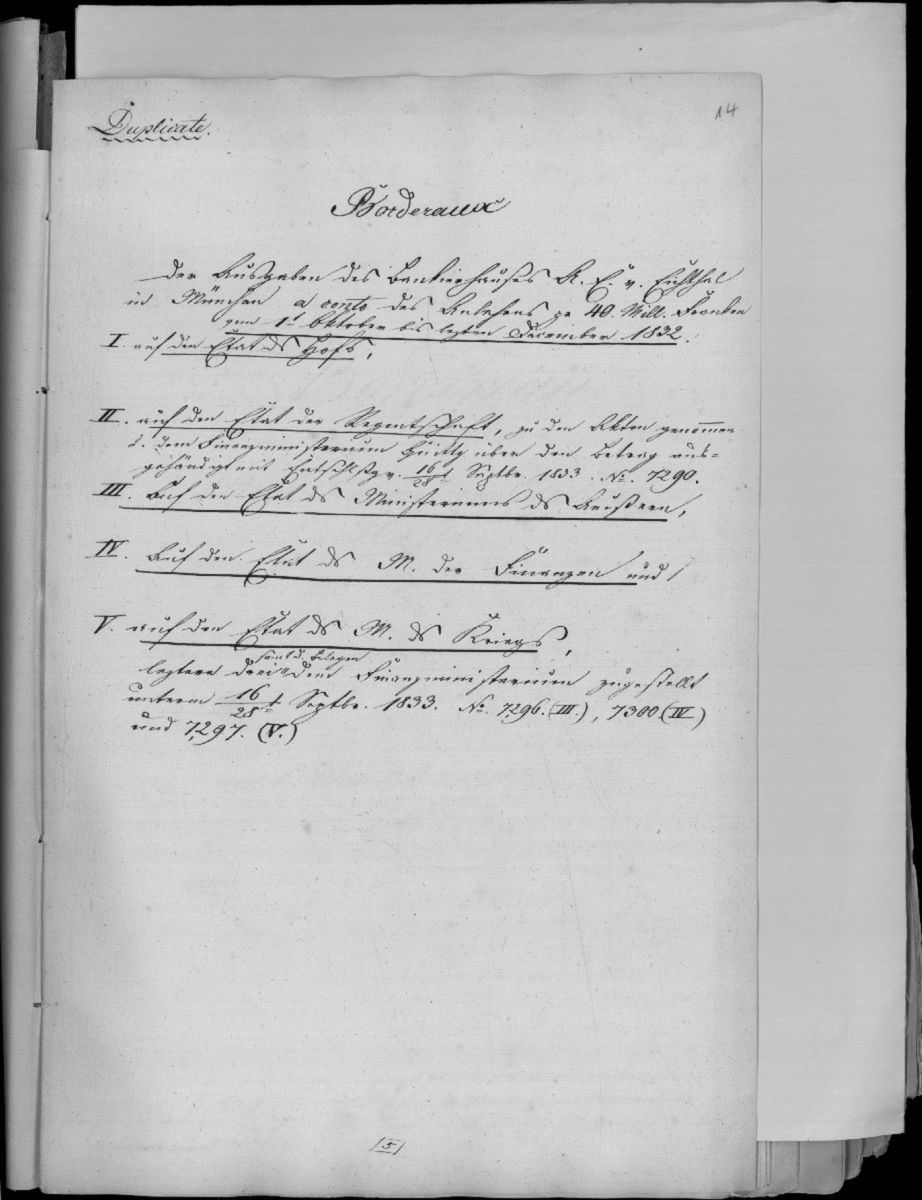 14
Duplicate.
Borderaux
der Ausgaben des Bankierhauses A. E. v. Eichthal
in München a conto des Anlehens zu 40. Mill. Franken
vom 1t Oktober bis lezten Dezember 1832.
I. auf den Etat ds Hofs,
II. auf den Etat der Regentschaft, zu den Akten genommen
u. dem Finanzministerium über den Betrag aus=
gehändigt mit Entschlßg v. 16/28t Septbr. 1833. No. 7290.
III. Auf den Etat ds Ministeriums ds Aeußern,
IV. Auf den Etat ds M. der Finanzen und
V. auf den Etat ds M. ds Kriegs,
samt d. Belegen
leztere drei dem Finanzministerium zugestellt
unterm 16/28t Septbr. 1833. No. 7296. (III.), 7300. (IV)
und 7297. (V.)
[5]